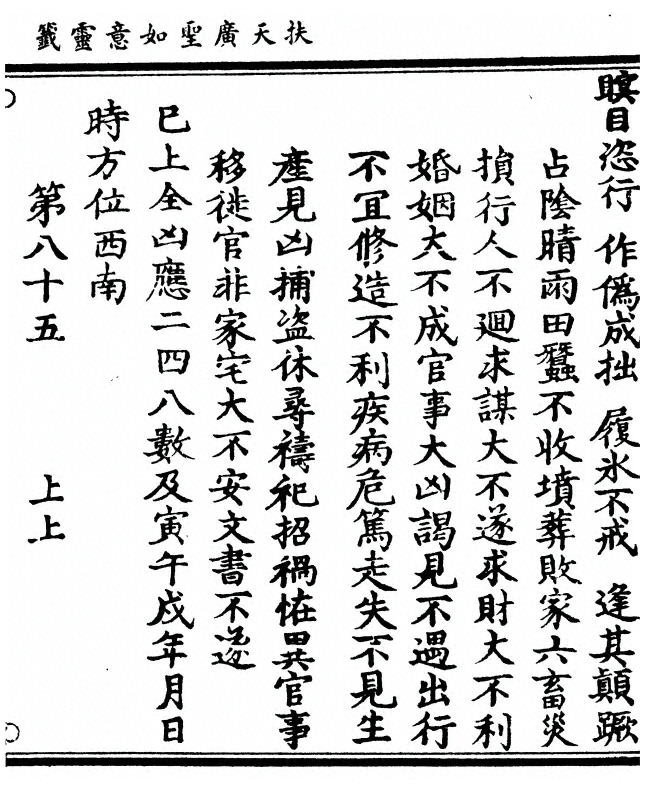 扶天廣聖如意靈籤
瞑目恣行 作偽成拙 履氷不戒 逢其顛蹶
占陰晴雨田蠶不收墳葬敗家六畜災
損行人不迴求謀大不遂求財大不利
婚姻大不成官事大凶謁見不遇出行
不宜修造不利疾病危篤走失不見生
產見凶捕盜休尋禱祀招禍怪異官事
移徙官非家宅大不安文書不遂
巳上全凶應二四八數及寅午戌年月日
時方位西南
第八十五 上上